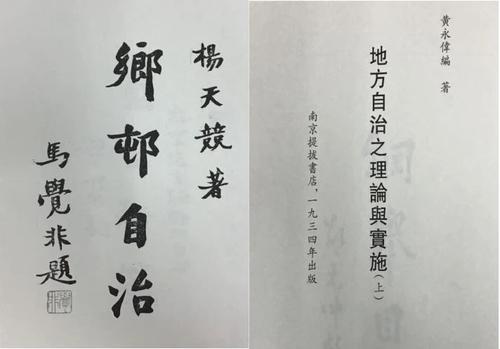 楊天競著
鄉邨自治
馬覺非題
黃永偉編著
地方自治之理論與實施（上）
南京提拔書店，一九三四年出版